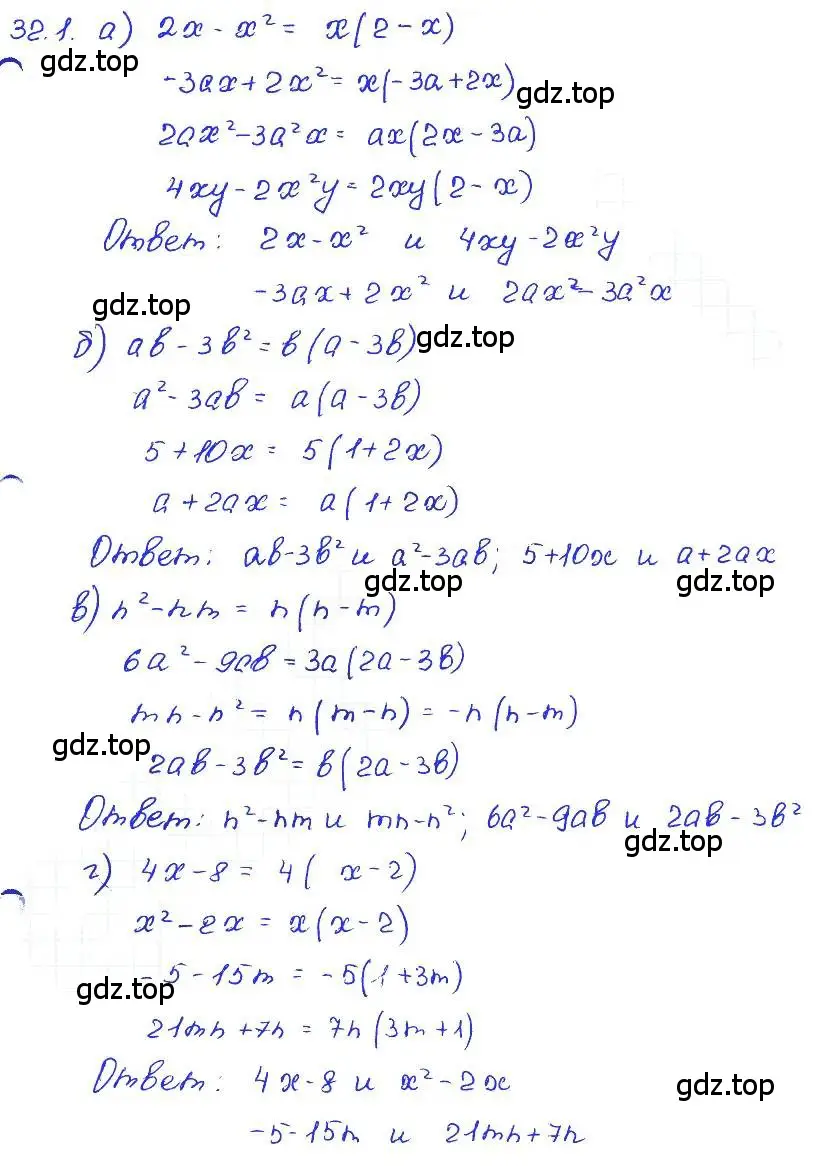 32.1. а) 2x - x² = x(2 - x)
gdz.top
-3ax + 2x² = x(-3a + 2x)
gdz.top
2ax² - 3a²x = ax(2x - 3a)
4xy - 2x²y = 2xy(2 - x)
Ответ: 2x - x² и 4xy - 2x²y
-3ax + 2x² и 2ax² - 3a²x
gdz.top
б) ab - 3b² = b(a - 3b)
gdz.top
a² - 3ab = a(a - 3b)
5 + 10x = 5(1 + 2x)
a + 2ax = a(1 + 2x)
Ответ: ab - 3b² и a² - 3ab; 5 + 10x и a + 2ax
gdz.top gdz.top
в) n² - nm = n(n - m)
6a² - 9ab = 3a(2a - 3b)
mn - n² = n(m - n) = -n(n - m)
gdz.top
2ab - 3b² = b(2a - 3b)
Ответ: n² - nm и mn - n²; 6a² - 9ab и 2ab - 3b²
gdz.top
г) 4x - 8 = 4( x - 2)
x² - 2x = x(x - 2)
-5 - 15m = -5(1 + 3m)
gdz.top
21mn + 7n = 7n(3m + 1)
Ответ: 4x - 8 и x² - 2x
gdz.top
-5 - 15m и 21mn + 7n